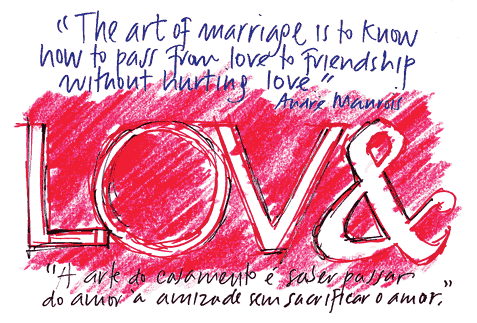 “The art of marriage is to know
how to pass from love to friendship
without hurting love”
André Maurois
LOV&
“A arte do casamento é saber passar
do amor à amizade sem sacrificar o amor.”